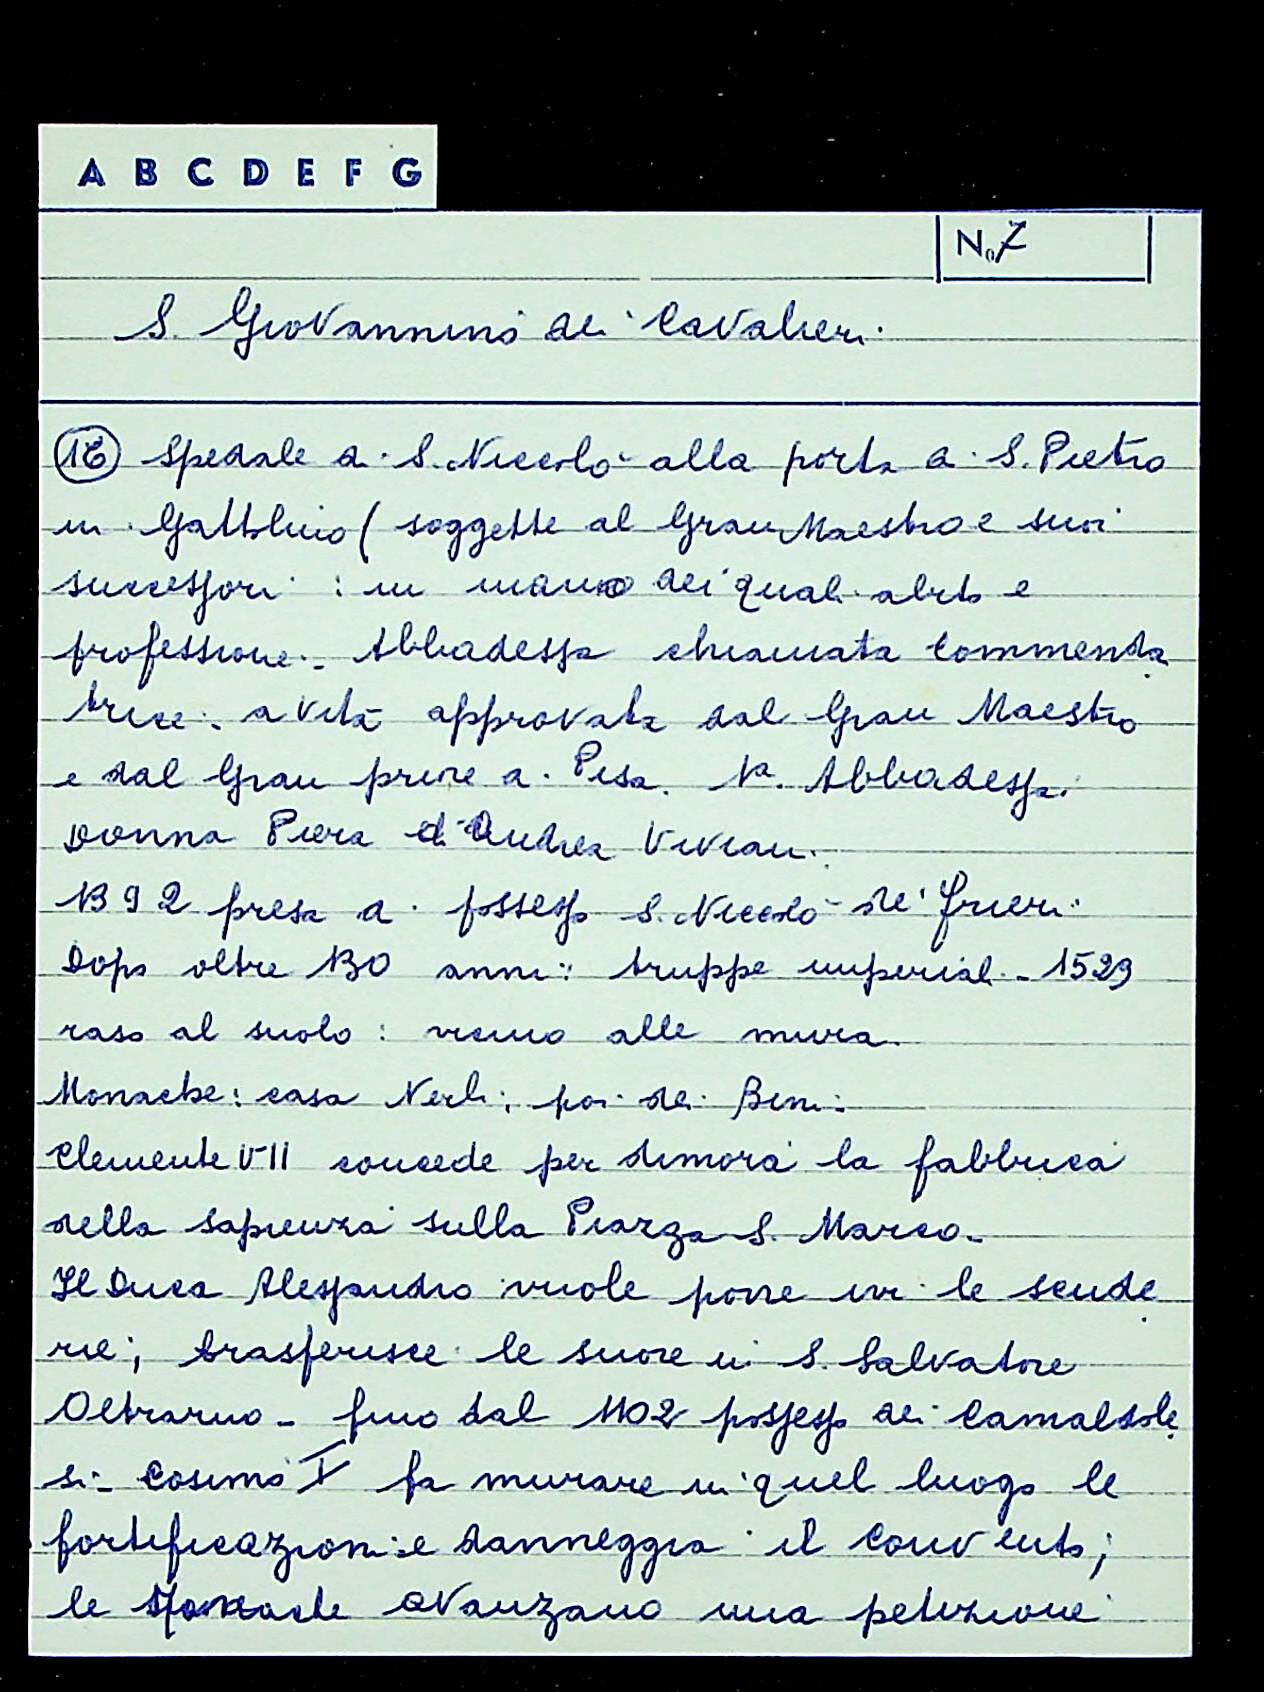 A B C D E F G
No 7
S. Giovannino dei Cavalieri.
16 Spedale di S. Niccolò alla porta di S. Pietro
in Gattolino ( soggette al Gran Maestro e suoi
successori : in mano dei quali abito e
professione. Abbadessa chiamata Commenda
trice. a vita approvata dal Gran Maestro
e dal Gran priore di Pisa. 1ª. Abbadessa:
Donna Piera di Andrea Viviani.
1392 presa di possesso S. Niccolò de' frieri.
Dopo oltre 130 anni: truppe imperiali - 1529
raso al suolo : vicino alle mura.
Monache: casa Nerli; poi dei Bini.
Clemente VII concede per dimora la fabbrica
della Sapienza sulla Piazza S. Marco.
Il Duca Alessandro vuole porre ivi le scude
rie; trasferisce le suore in S. Salvatore
Oltrarno - fino dal 1102 possesso dei Camaldole
si. Cosimo I fa murare in quel luogo le
fortificazioni e danneggia il convento;
le Monache avanzano una petizione